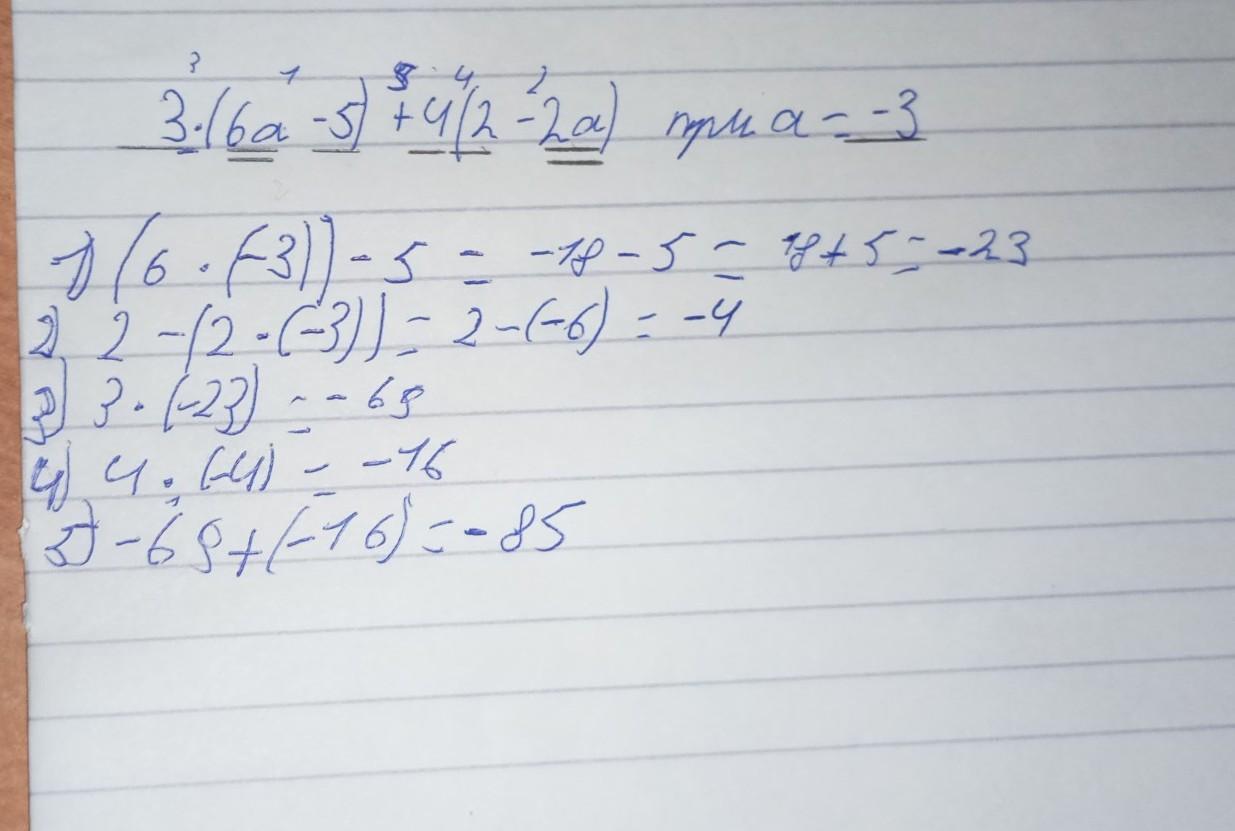 3 1 5 4 2
3·(6a -5) +4(2 -2a) при a = -3
1) (6 · (-3)) - 5 = -18 - 5 = 18 + 5 = -23
2) 2 -(2 ·(-3)) = 2 -(-6) = -4
3) 3 · (-23) = -69
4) 4 · (-4) = -16
5) -69+(-16) = -85